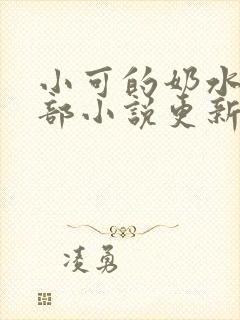 小可的奶水
部小说更新
凌勇